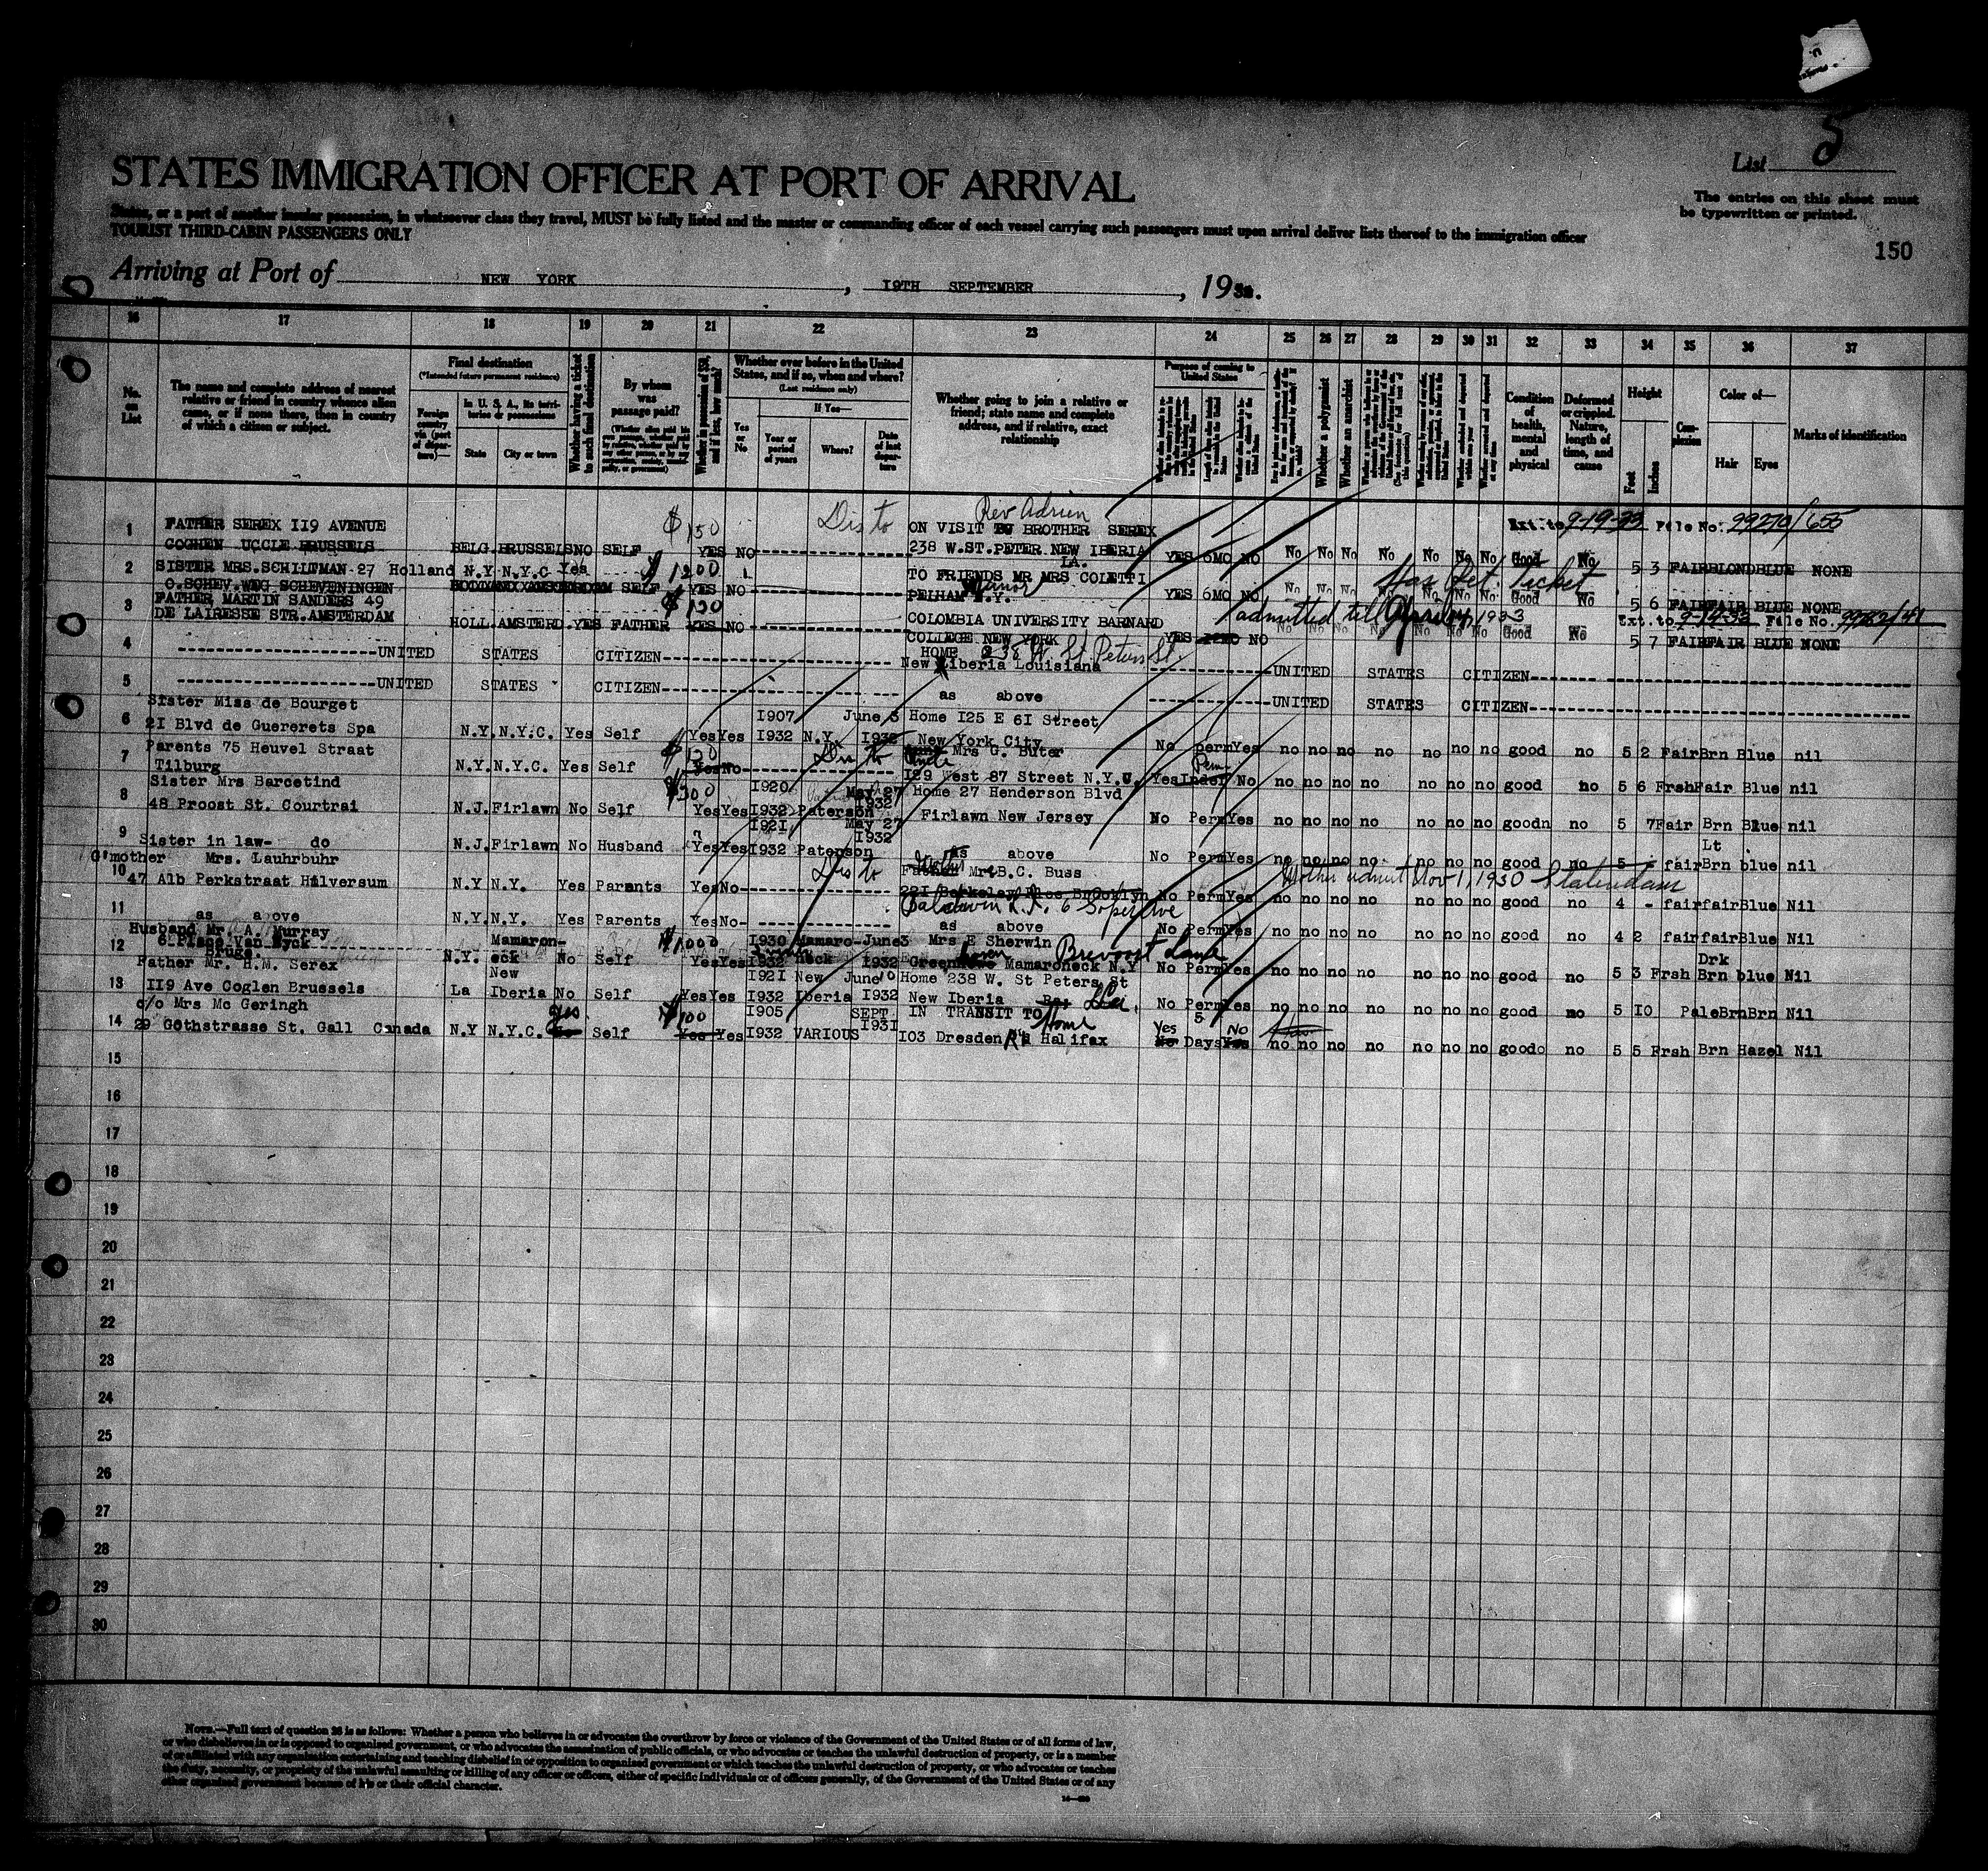 5
List
STATES IMMIGRATION OFFICER AT PORT OF ARRIVAL
The entries on this sheet must
be typewritten or printed.
States, or a port of another insular possession, in whatsoever class they travel, MUST be fully listed and the master or commanding officer of each vessel carrying such passengers must upon arrival deliver lists thereof to the immigration officer
TOURIST THIRD-CABIN PASSENGERS ONLY
150
Arriving at Port of NEW YORK, 19TH SEPTEMBER, 1932.
16 17 18 19 20 21 22 23 24 25 26 27 28 29 30 31 32 33 34 35 36 37
No. on List
The name and complete address of nearest relative or friend in country whence alien came, or if none there, then in country of which a citizen or subject.
Final destination
(*Intended future permanent residence)
Foreign country via (port of departure)—
In U. S. A., its territories or possessions
State City or town
Whether having a ticket to such final destination
By whom was passage paid?
Whether in possession of $50, and if less, how much?
Whether ever before in the United States, and if so, when and where?
(Last residence only)
Yes or No
If Yes—
Year or period of years Where? Date of last departure
Whether going to join a relative or friend; state name and complete address, and if relative, exact relationship
Purpose of coming to United States
Whether a polygamist
Whether an anarchist
Condition of health, mental and physical
Deformed or crippled. Nature, length of time, and cause
Height
Feet Inches
Complexion
Color of—
Hair Eyes
Marks of identification
1 FATHER SEREX 119 AVENUE $150 Dis to Rev Adrien ON VISIT BROTHER SEREX Ext. to 9-19-33 File No. 99270/655
COGHEN UCCLE BRUSSELS BELG. BRUSSELS NO SELF YES NO 238 W.ST.PETER NEW IBERIA LA. YES 6MO NO No No No No No No No Good No 5 3 FAIR BLOND BLUE NONE
2 SISTER MRS.SCHILTMAN 27 Holland N.Y. N.Y.C Yes $1200 TO FRIENDS MR MRS COLETTI Has Ret. Ticket
O.SCHEV.WEG SCHEVENINGEN SELF YES NO PELHAM Manor N.Y. YES 6MO NO No No No No No No No Good No 5 6 FAIR FAIR BLUE NONE
3 FATHER MARTIN SANDERS 49 $130 COLOMBIA UNIVERSITY BARNARD admitted till 1933 Ext. to File No.
DE LAIRESSE STR.AMSTERDAM HOLL. AMSTERD. YES FATHER YES NO COLLEGE NEW YORK YES NO No No No No No No No Good No 5 7 FAIR FAIR BLUE NONE
4 UNITED STATES CITIZEN HOME 238 W. St Peters St. New Iberia Louisiana UNITED STATES CITIZEN
5 UNITED STATES CITIZEN as above UNITED STATES CITIZEN
6 Sister Miss de Bourget 1907 June 3 Home 125 E 61 Street
21 Blvd de Guererets Spa N.Y. N.Y.C. Yes Self Yes Yes 1932 N.Y. 1932 New York City No perm Yes no no no no no no no good no 5 2 Fair Brn Blue nil
7 Parents 75 Heuvel Straat $120 Dis to Uncle Mrs G. Buter Pem
Tilburg N.Y. N.Y.C. Yes Self Yes No 129 West 87 Street N.Y.C. Yes Indef No no no no no no no no good no 5 6 Frsh Fair Blue nil
8 Sister Mrs Barcetind $300 1920 May 27 Home 27 Henderson Blvd
48 Proost St. Courtrai N.J. Firlawn No Self Yes Yes 1932 Paterson 1932 Firlawn New Jersey No Perm Yes no no no no no no no goodn no 5 7 Fair Brn Blue nil
9 1921 May 27
Sister in law- do N.J. Firlawn No Husband Yes Yes 1932 Paterson 1932 as above No Perm Yes no no no no no no no good no 5 - fair Lt Brn blue nil
10 G'mother Mrs. Lauhrbuhr Dis to Mother Father Mr B.C. Buss Mother admit Nov 1, 1930 Statendam
47 Alb Perkstraat Hilversum N.Y N.Y. Yes Parents Yes No 221 Berkeley Place Brooklyn No Perm Yes no no no no no no no good no 4 - fair fair Blue Nil
11 Baldwin L.I. 6 Soper Ave
as above N.Y N.Y. Yes Parents Yes No as above No Perm Yes no no no no no no no good no 4 2 fair fair Blue Nil
12 Husband Mr. A. Murray Mamaron- $1000 1930 Mamaro- June 3 Mrs E Sherwin Brevoort Lane
6 Place Van Eyck Bruge. N.Y. eck No Self Yes Yes 1932 neck 1932 Mamaroneck N.Y No Perm Yes no no no no no no no good no 5 3 Frsh Drk Brn blue Nil
13 Father Mr. H.M. Serex New 1921 New June 10 Home 238 W. St Peters St
119 Ave Coglen Bruesels La Iberia No Self Yes Yes 1932 Iberia 1932 New Iberia No Perm Yes no no no no no no no good no 5 10 Pale Brn Brn Nil
14 c/o Mrs Mc Geringh yes $100 1905 SEPT IN TRANSIT TO Home Yes 5 No
29 Gothstrasse St. Gall Canada N.Y N.Y.C. Self Yes Yes 1932 VARIOUS 1931 103 Dresden Halifax No Days Yes no no no no no no no goodo no 5 5 Frsh Brn Hazel Nil
15
16
17
18
19
20
21
22
23
24
25
26
27
28
29
30
NOTE.—Full text of question 28 is as follows: Whether a person who believes in or advocates the overthrow by force or violence of the Government of the United States or of all forms of law,
or who disbelieves in or is opposed to organized government, or who advocates the assassination of public officials, or who advocates or teaches the unlawful destruction of property, or is a member
of or affiliated with any organization entertaining and teaching disbelief in or opposition to organized government or which teaches the unlawful destruction of property, or who advocates or teaches
the duty, necessity, or propriety of the unlawful assaulting or killing of any officer or officers, either of specific individuals or of officers generally, of the Government of the United States or of any
other organized government because of his or their official character.